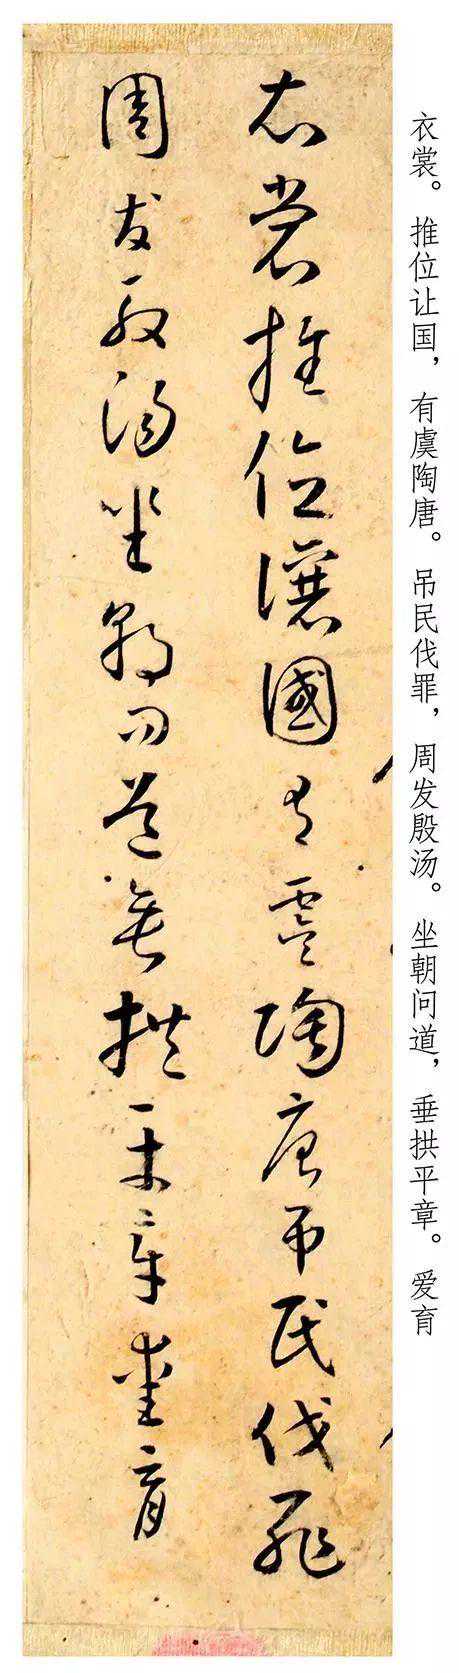 衣裳。推位让国，有虞陶唐。吊民伐罪，周发殷汤。坐朝问道，垂拱平章。爱育
衣裳推位讓國有虞陶唐吊民伐罪
周發殷湯坐朝問道垂拱平章愛育